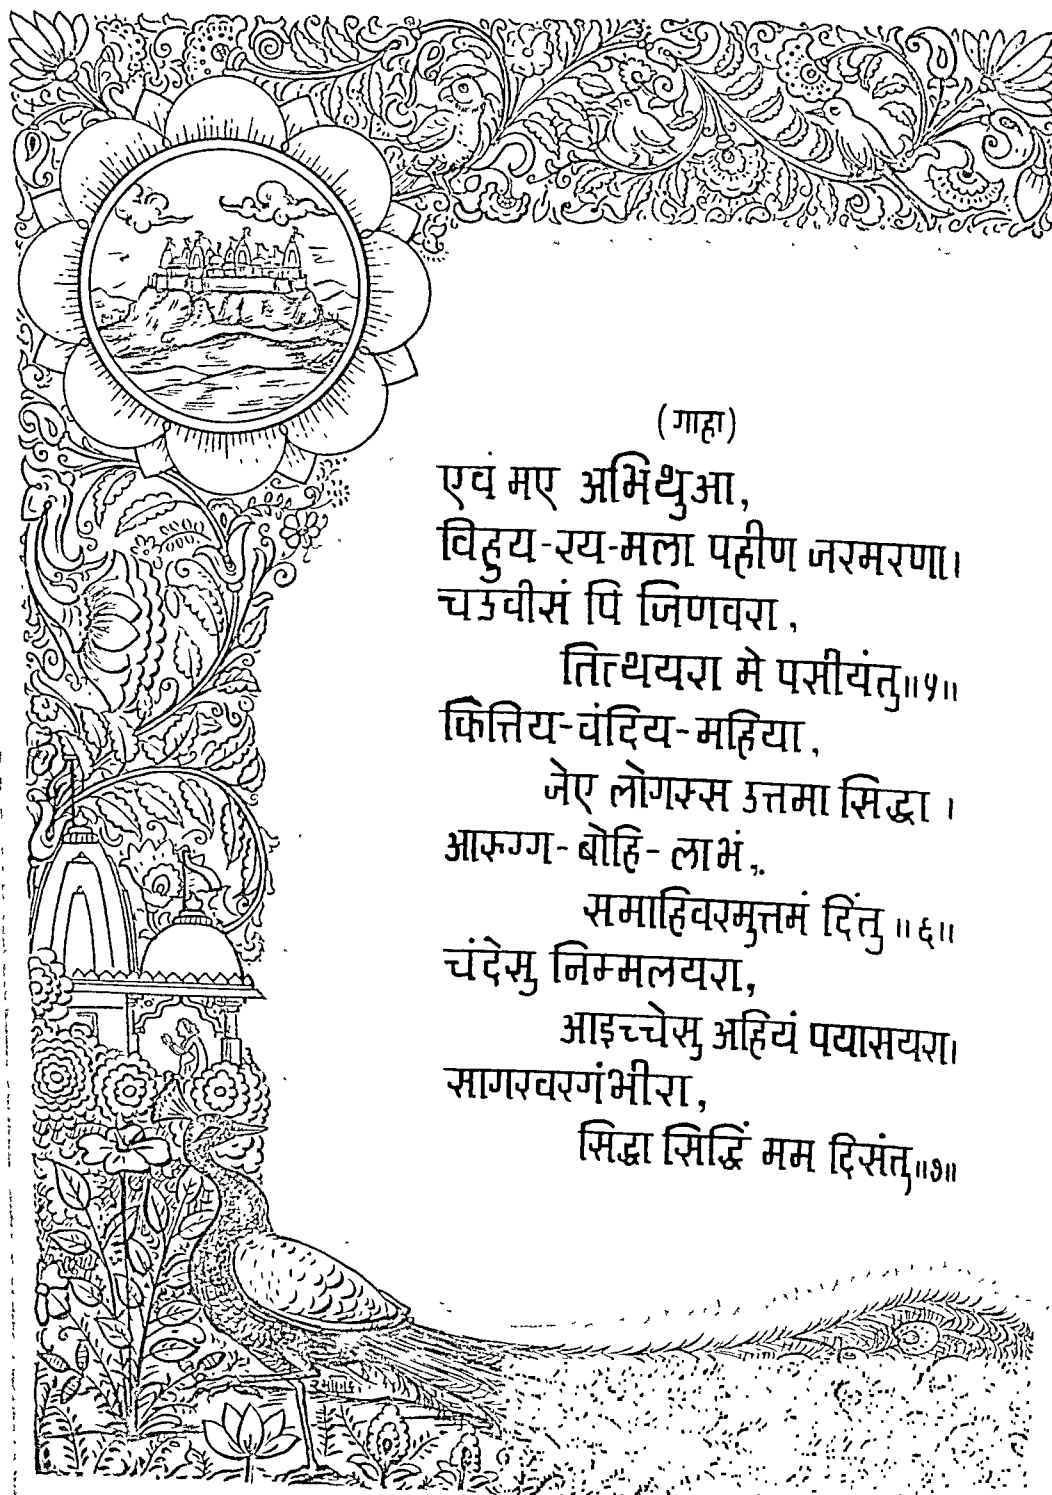 (गाहा)
एवं मए अभिथुआ,
विहुय-रय-मला पहीण जरमरणा।
चउवीसं पि जिणवरा,
तित्थयरा मे पसीयंतु॥५॥
कित्तिय-वंदिय-महिया,
जेए लोगस्स उत्तमा सिद्धा ।
आरुग्ग-बोहि-लाभं,
समाहिवरमुत्तमं दिंतु ॥६॥
चंदेसु निम्मलयरा,
आइच्चेसु अहियं पयासयरा।
सागरवरगंभीरा,
सिद्धा सिद्धिं मम दिसंतु॥७॥